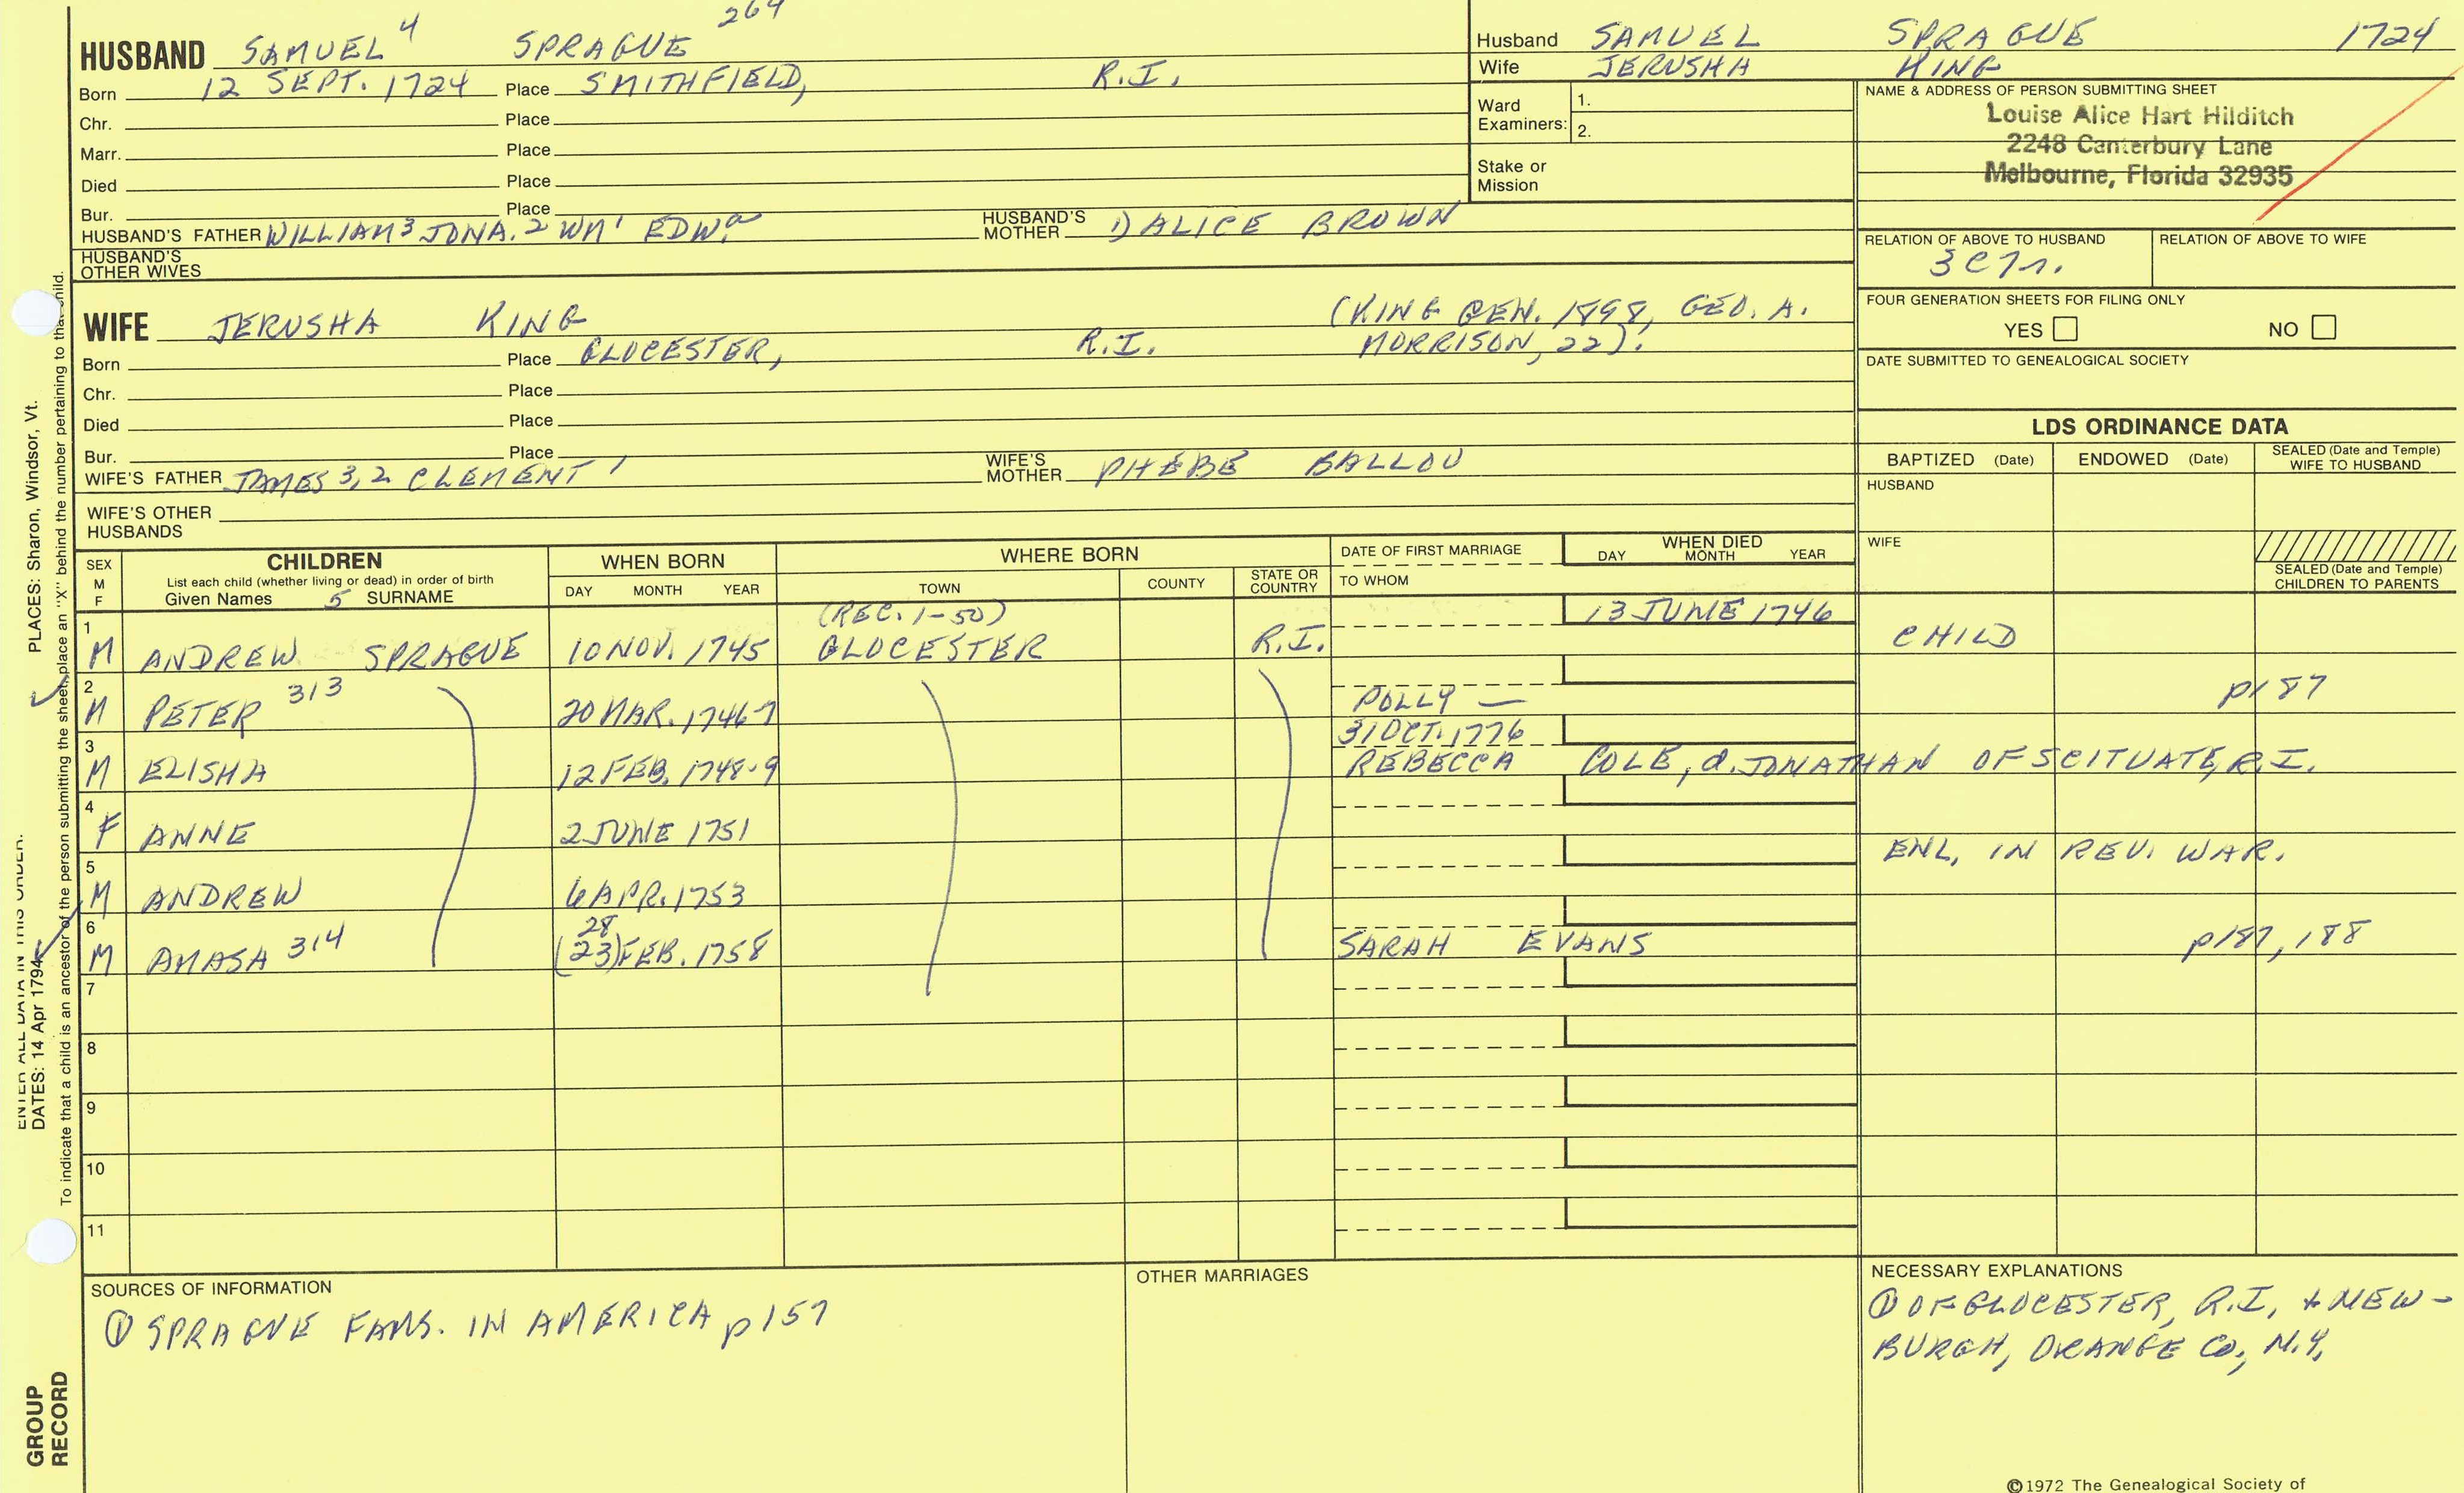 264
HUSBAND SAMUEL 4 SPRAGUE
Born 12 SEPT. 1724 Place SMITHFIELD, R.I.
Chr. Place
Marr. Place
Died Place
Bur. Place
HUSBAND'S FATHER WILLIAM 3 JONA. 2 WM 1 EDW. a HUSBAND'S MOTHER 1) ALICE BROWN
HUSBAND'S OTHER WIVES
Husband SAMUEL SPRAGUE 1724
Wife JERUSHA KING
Ward Examiners: 1.
2.
Stake or Mission
NAME & ADDRESS OF PERSON SUBMITTING SHEET
Louise Alice Hart Hilditch
2248 Canterbury Lane
Melbourne, Florida 32935
RELATION OF ABOVE TO HUSBAND RELATION OF ABOVE TO WIFE
3C7r.
FOUR GENERATION SHEETS FOR FILING ONLY
YES NO
DATE SUBMITTED TO GENEALOGICAL SOCIETY
WIFE JERUSHA KING (KING GEN. 1898, GEO. A.
MORRISON, 22).
Born Place GLOCESTER, R.I.
Chr. Place
Died Place
Bur. Place
WIFE'S FATHER JAMES 3,2 CLEMENT 1 WIFE'S MOTHER PHEBE BALLOU
WIFE'S OTHER HUSBANDS
LDS ORDINANCE DATA
BAPTIZED (Date) ENDOWED (Date) SEALED (Date and Temple) WIFE TO HUSBAND
HUSBAND
WIFE
SEALED (Date and Temple) CHILDREN TO PARENTS
SEX M F CHILDREN WHEN BORN WHERE BORN DATE OF FIRST MARRIAGE WHEN DIED
List each child (whether living or dead) in order of birth DAY MONTH YEAR
Given Names 5 SURNAME DAY MONTH YEAR TOWN COUNTY STATE OR COUNTRY TO WHOM
(REC. 1-50) 13 JUNE 1746
1 M ANDREW SPRAGUE 10 NOV. 1745 GLOCESTER R.I. CHILD
2 M PETER 313 20 MAR. 1746-7 POLLY — p187
31 OCT. 1776
3 M ELISHA 12 FEB. 1748-9 REBECCA COLE, d. JONATHAN OF SCITUATE, R.I.
4 F ANNE 2 JUNE 1751
5 M ANDREW 6 APR. 1753 ENL. IN REV. WAR.
28
6 M AMASA 314 (23) FEB. 1758 SARAH EVANS p187, 188
7
8
9
10
11
SOURCES OF INFORMATION
① SPRAGUE FAMS. IN AMERICA p157
OTHER MARRIAGES
NECESSARY EXPLANATIONS
① OF GLOCESTER, R.I, + NEW-
BURGH, ORANGE CO, N.Y.
©1972 The Genealogical Society of
PLACES: Sharon, Windsor, Vt.
ENTER ALL DATA IN THIS ORDER:
DATES: 14 Apr 1794
To indicate that a child is an ancestor of the person submitting the sheet, place an "X" behind the number pertaining to that child.
GROUP
RECORD